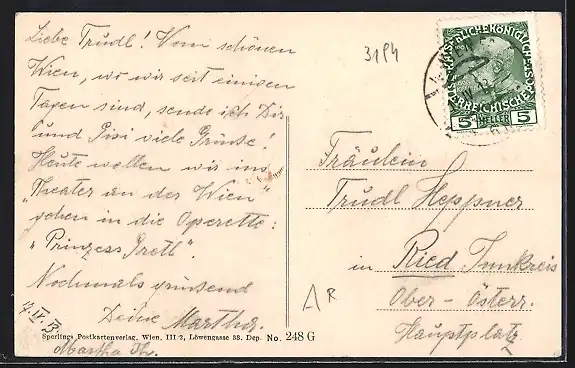 Liebe Trudl! Vom schönen
Wien, wo wir seit einigen
Tagen sind, sende ich Dir
und Pisi viele Grüße!
Heute wollen wir ins
"Theater an der Wien"
gehen in die Operette:
"Prinzess Gretl".
Nochmals grüssend
Deine Martha.
17. IV. 13.
Martha Th.
Sperlings Postkartenverlag, Wien, III/2, Löwengasse 38. Dep. No. 248 G
3194
KAISERLICHE KÖNIGLICHE ÖSTERREICHISCHE POST
5 HELLER 5
Fräulein
Trudl Heppner
in Ried Innkreis
Ober-Österr.
Hauptplatz
AR